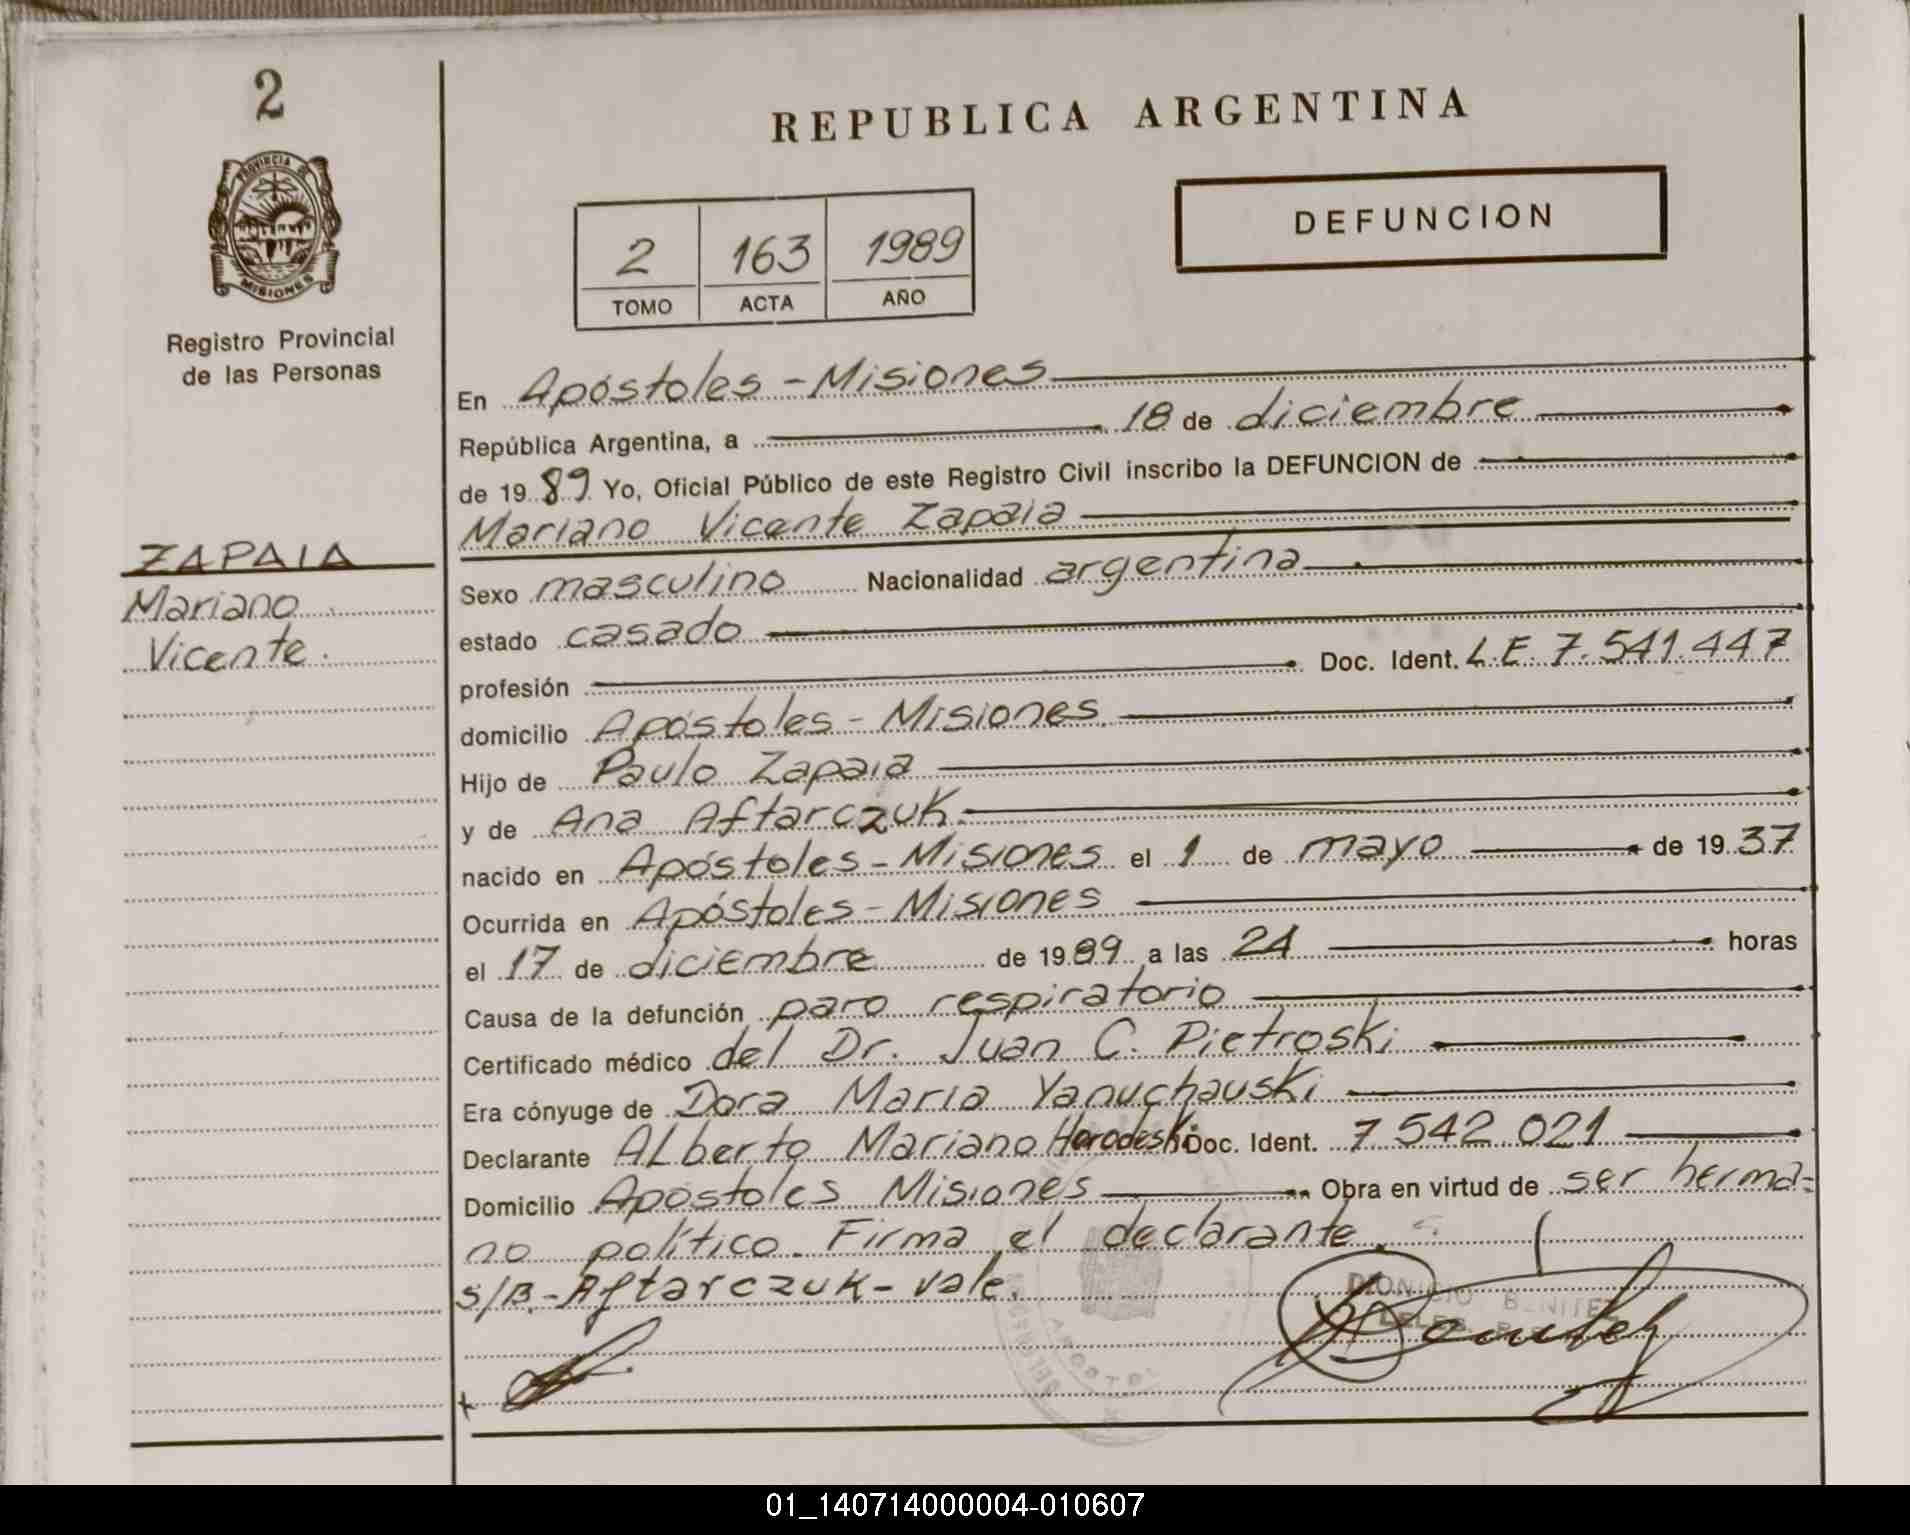 2
REPUBLICA ARGENTINA
PROVINCIA DE
MISIONES
Registro Provincial
de las Personas
2 163 1989
TOMO ACTA AÑO
DEFUNCION
ZAPAIA
Mariano
Vicente.
En Apóstoles - Misiones
República Argentina, a 18 de diciembre
de 19 89 Yo, Oficial Público de este Registro Civil inscribo la DEFUNCION de
Mariano Vicente Zapaia
Sexo masculino Nacionalidad argentina
estado casado
profesión Doc. Ident. L.E. 7.541.447
domicilio Apóstoles - Misiones
Hijo de Paulo Zapaia
y de Ana Aftarczuk
nacido en Apóstoles - Misiones el 1 de mayo de 19 37
Ocurrida en Apóstoles - Misiones
el 17 de diciembre de 19 89 a las 24 horas
Causa de la defunción paro respiratorio
Certificado médico del Dr. Juan C. Pietroski
Era cónyuge de Dora Maria Yanuchauski
Declarante ALberto Mariano Horodeski Doc. Ident. 7 542 021
Domicilio Apostoles Misiones Obra en virtud de ser herma=
no político. Firma el declarante.
s/B.- Aftarczuk - vale.
DIONICIO BENITEZ
01_140714000004-010607